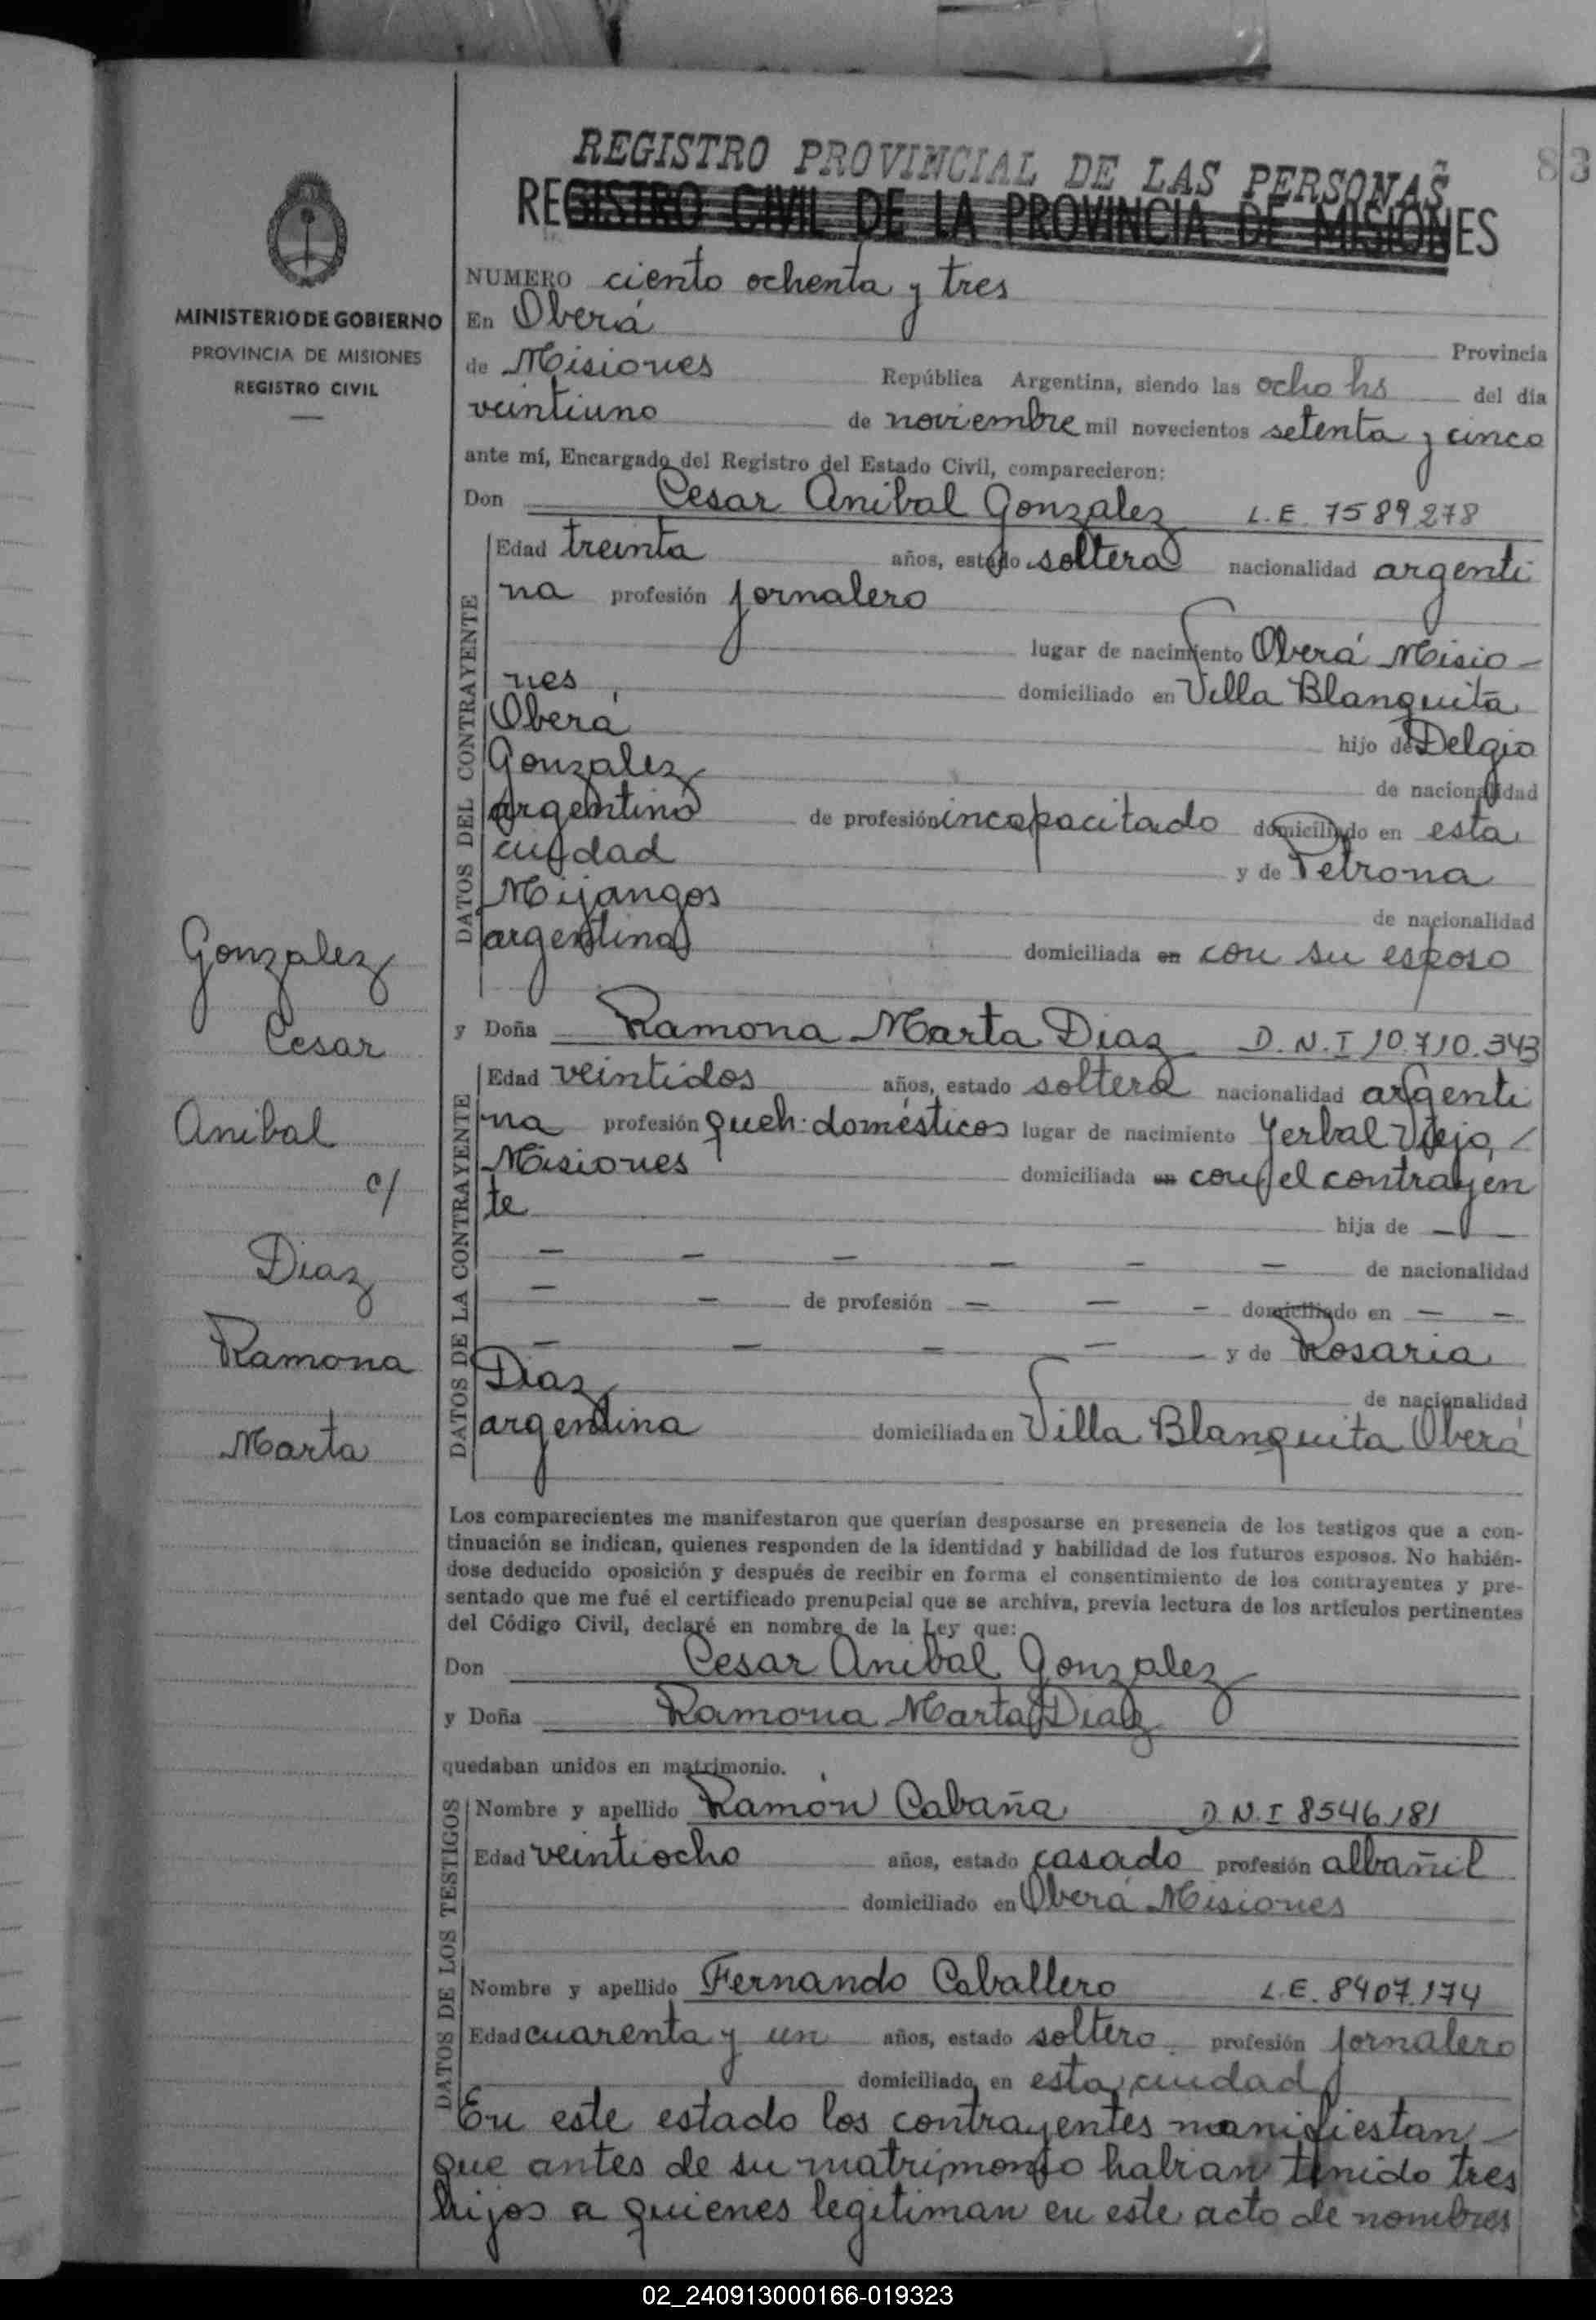 REGISTRO PROVINCIAL DE LAS PERSONAS
83
REGISTRO CIVIL DE LA PROVINCIA DE MISIONES
MINISTERIO DE GOBIERNO
PROVINCIA DE MISIONES
REGISTRO CIVIL
NUMERO ciento ochenta y tres
En Oberá Provincia
de Misiones República Argentina, siendo las ocho hs del día
veintiuno de noviembre mil novecientos setenta y cinco
ante mí, Encargado del Registro del Estado Civil, comparecieron:
Don Cesar Anibal Gonzalez L.E. 7589278
DATOS DEL CONTRAYENTE
Edad treinta años, estado soltero nacionalidad argenti
na profesión jornalero
lugar de nacimiento Oberá Misio-
nes domiciliado en Villa Blanquita
Oberá hijo de Delgio
Gonzalez de nacionalidad
argentino de profesión incapacitado domiciliado en esta
ciudad y de Petrona
Mijangos de nacionalidad
argentina domiciliada en con su esposo
Gonzalez
Cesar
Anibal
c/
Diaz
Ramona
Marta
y Doña Ramona Marta Diaz D.N.I 10.710.343
DATOS DE LA CONTRAYENTE
Edad veintidos años, estado soltera nacionalidad argenti
na profesión queh. domésticos lugar de nacimiento Yerbal Viejo,
Misiones domiciliada en con el contrayen
te hija de — —
— — — — — — de nacionalidad
— — de profesión — — — domiciliado en — —
— — — — — y de Rosaria
Diaz de nacionalidad
argentina domiciliada en Villa Blanquita Oberá
Los comparecientes me manifestaron que querían desposarse en presencia de los testigos que a con-
tinuación se indican, quienes responden de la identidad y habilidad de los futuros esposos. No habién-
dose deducido oposición y después de recibir en forma el consentimiento de los contrayentes y pre-
sentado que me fué el certificado prenupcial que se archiva, previa lectura de los artículos pertinentes
del Código Civil, declaré en nombre de la Ley que:
Don Cesar Anibal Gonzalez
y Doña Ramona Marta Diaz
quedaban unidos en matrimonio.
DATOS DE LOS TESTIGOS
Nombre y apellido Ramón Cabaña D.N.I 8546181
Edad veintiocho años, estado casado profesión albañil
domiciliado en Oberá Misiones
Nombre y apellido Fernando Caballero L.E. 8407.174
Edad cuarenta y un años, estado soltero profesión jornalero
domiciliado en esta ciudad
En este estado los contrayentes manifiestan
que antes de su matrimonio habian tenido tres
hijos a quienes legitiman en este acto de nombres
02_240913000166-019323